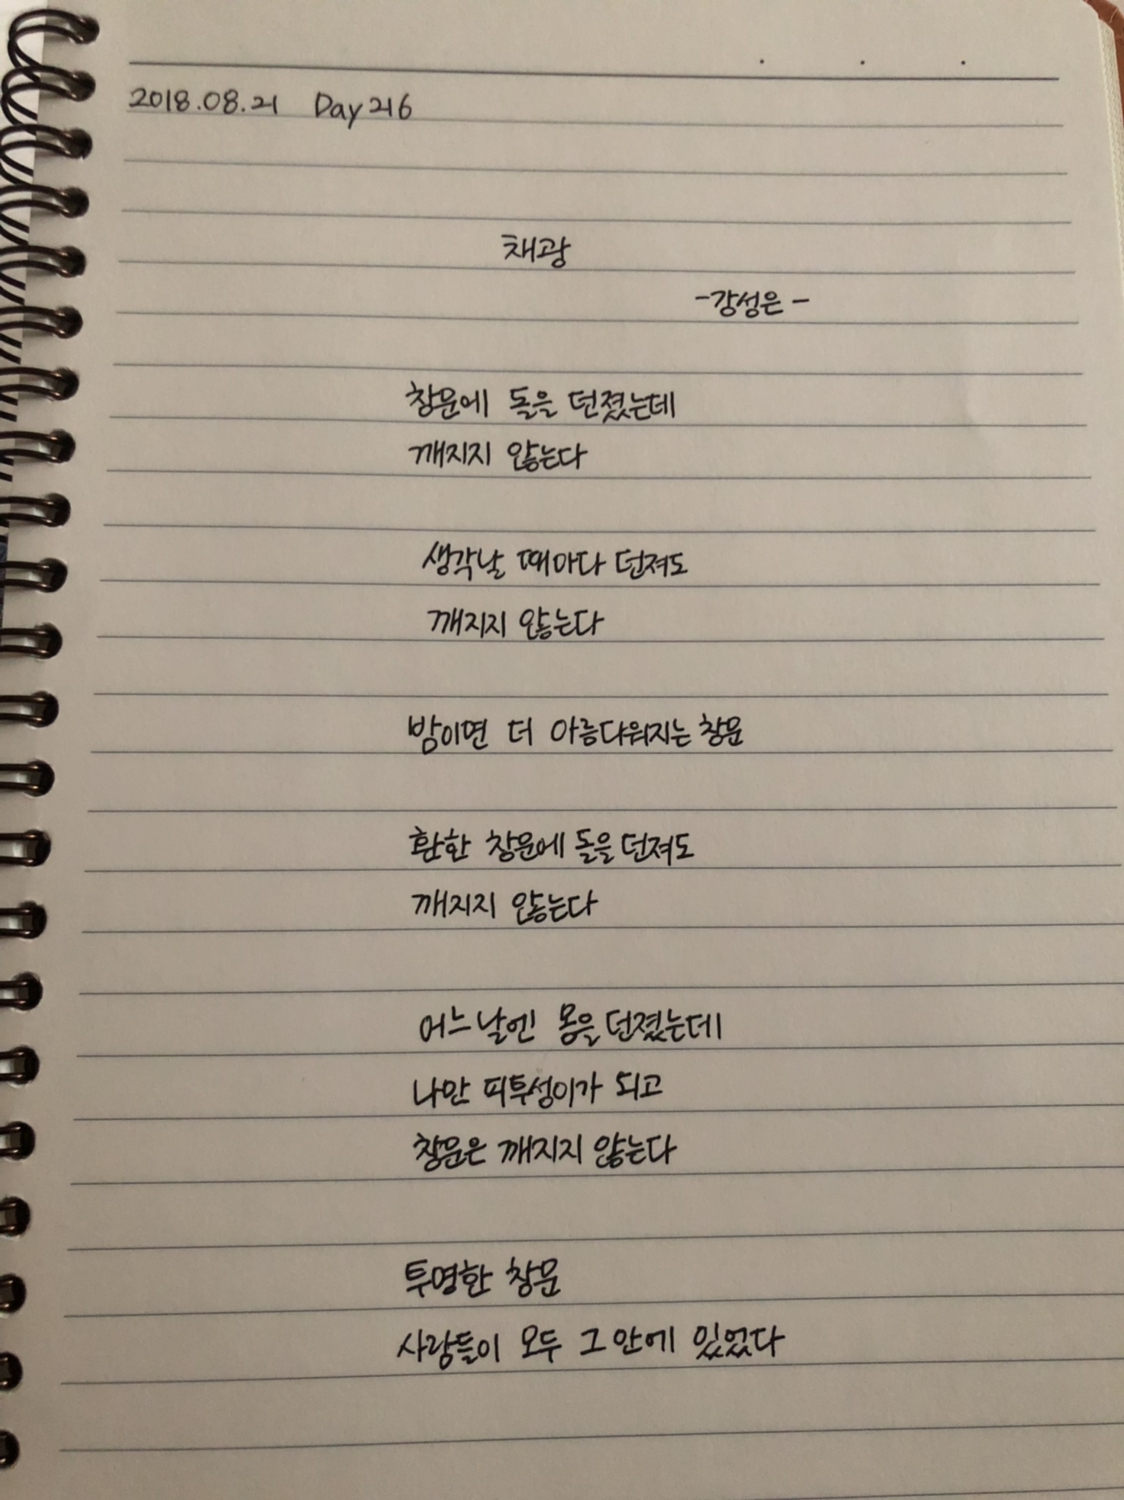 2018.08.21 Day 216
채광
-강성은-
창문에 돌을 던졌는데
깨지지 않는다
생각날 때마다 던져도
깨지지 않는다
밤이면 더 아름다워지는 창문
환한 창문에 돌을 던져도
깨지지 않는다
어느날엔 몸을 던졌는데
나만 피투성이가 되고
창문은 깨지지 않는다
투명한 창문
사람들이 모두 그 안에 있었다